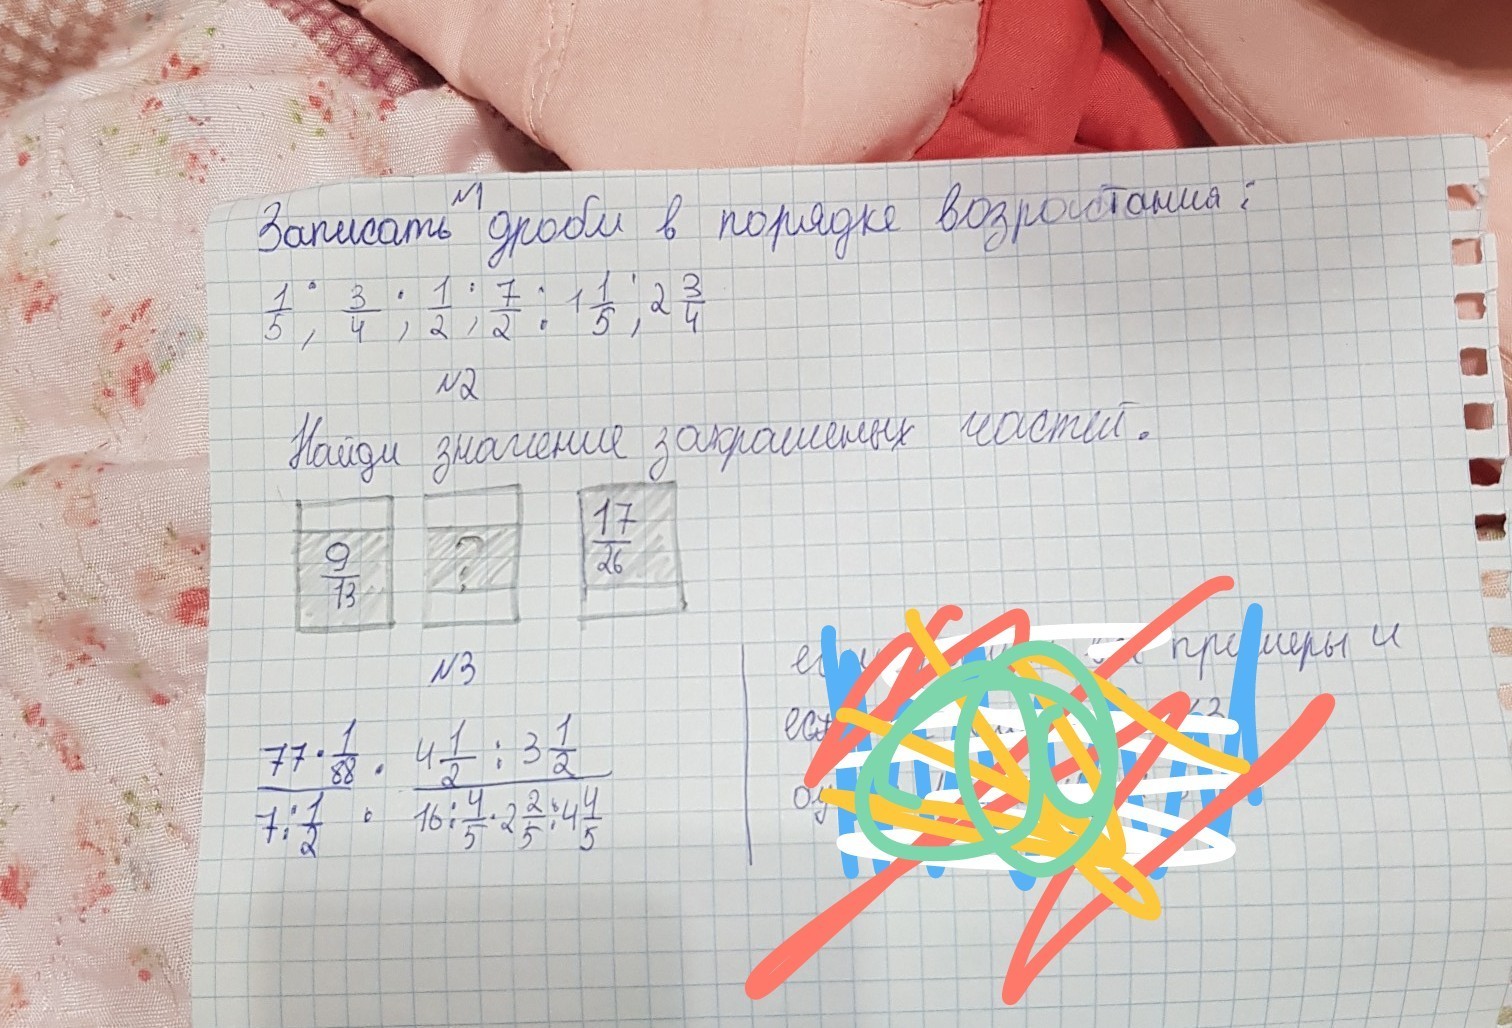 №1
Записать дроби в порядке возростания:
1/5 ; 3/4 ; 1/2 ; 7/2 ; 1 1/5 ; 2 3/4
№2
Найди значение закрашеных частей.
9/13 ? 17/26
№3
77 · 1/88 : 4 1/2 : 3 1/2
7 : 1/2 16 : 4/5 · 2 2/5 : 4 4/5
примеры и